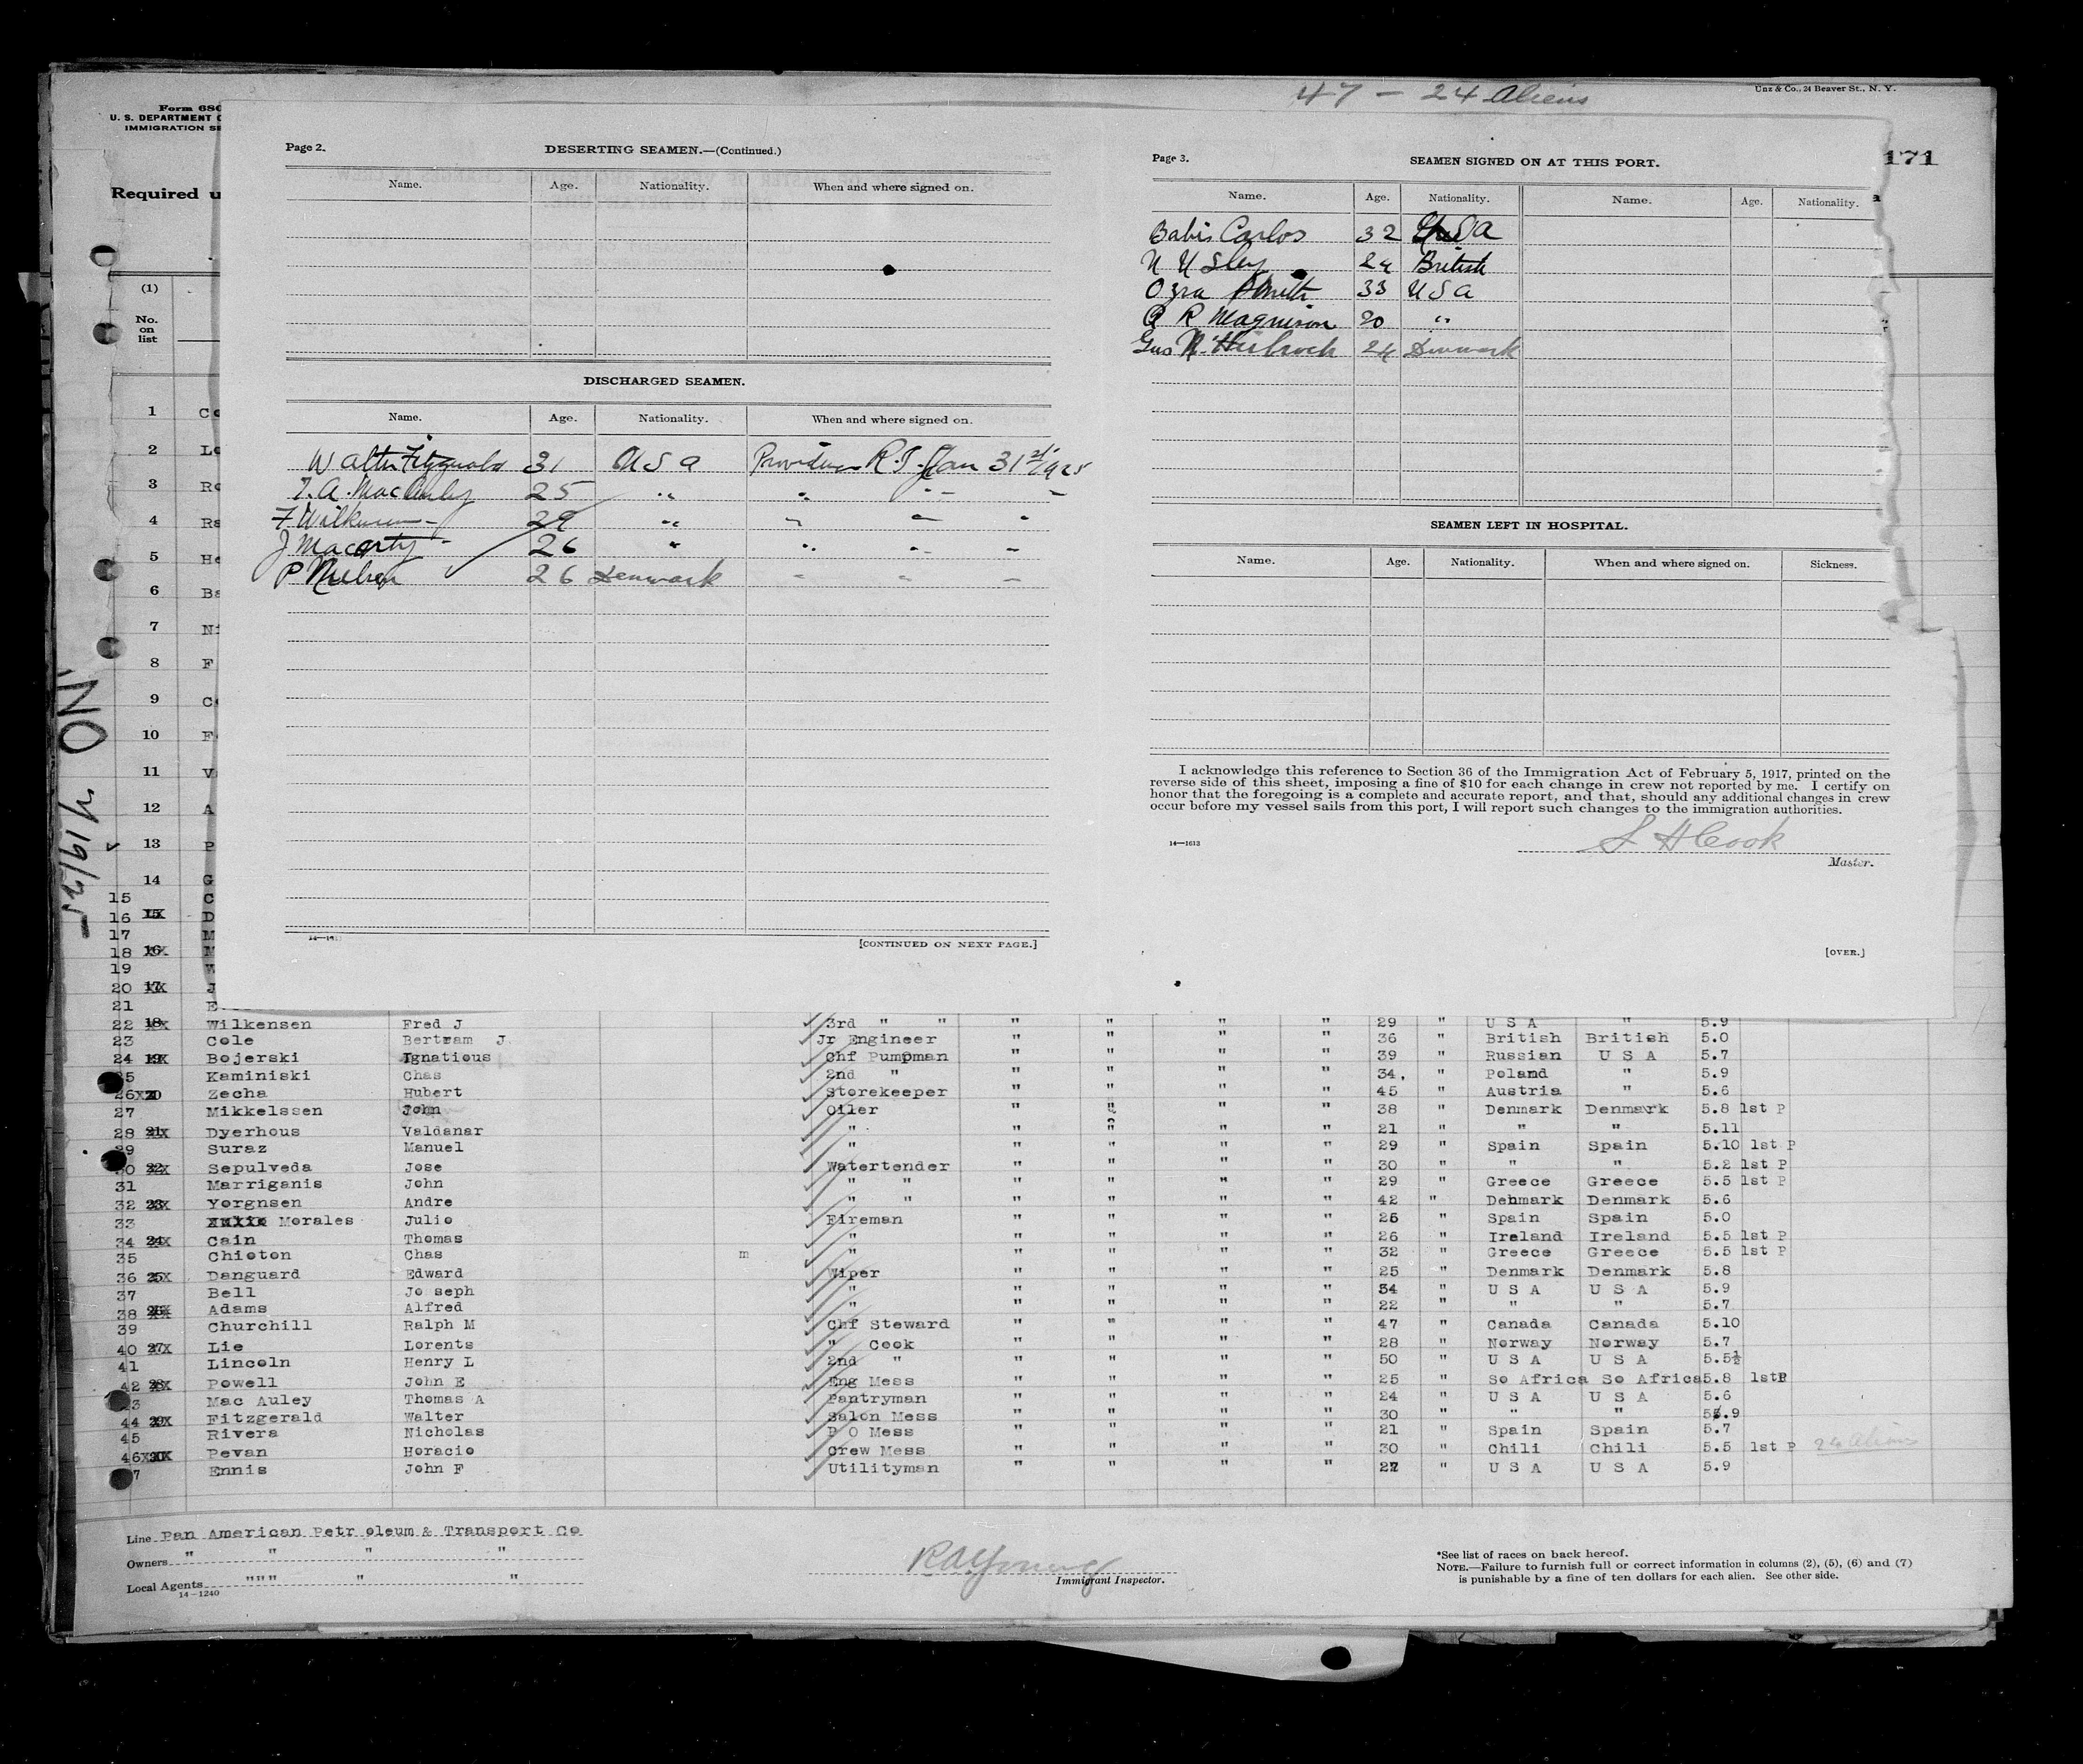 47 - 24 Aliens
Unz & Co., 24 Beaver St., N. Y.
Form 680
U. S. DEPARTMENT O
IMMIGRATION SE
Required u
171
(1)
No. on list
Page 2.
DESERTING SEAMEN.—(Continued.)
Name. Age. Nationality. When and where signed on.
DISCHARGED SEAMEN.
Name. Age. Nationality. When and where signed on.
Walter Fitzgerald 31 U S A Providence R.I. Jan 31st 1925
T. A. MacAuley 25 " " " "
F Wilkensen 29 " " " "
J Macarty 26 " " " "
P Nielsen 26 Denmark " " "
14—1613
[CONTINUED ON NEXT PAGE.]
Page 3.
SEAMEN SIGNED ON AT THIS PORT.
Name. Age. Nationality. Name. Age. Nationality.
Babis Carlos 32 U S A
24 British
Ozra Smith 33 U S A
R Magnison 20 "
Gus 24 Denmark
SEAMEN LEFT IN HOSPITAL.
Name. Age. Nationality. When and where signed on. Sickness.
I acknowledge this reference to Section 36 of the Immigration Act of February 5, 1917, printed on the
reverse side of this sheet, imposing a fine of $10 for each change in crew not reported by me. I certify on
honor that the foregoing is a complete and accurate report, and that, should any additional changes in crew
occur before my vessel sails from this port, I will report such changes to the immigration authorities.
S H Cook
Master.
14—1613
[OVER.]
1 Co
2 Lo
3 Ro
4 Ra
5 He
6 Ba
7 Ni
8 F
9 Co
10 F
11 V
12 A
13 P
14 G
15 C
16 15 D
17 M
18 16 M
19 W
20 17 J
21 E
22 18 Wilkensen Fred J 3rd " " " " " " 29 " U S A " 5.9
23 Cole Bertram J Jr Engineer " " " " 36 " British British 5.0
24 19 Bojerski Ignatious Chf Pumpman " " " " 39 " Russian U S A 5.7
25 Kaminiski Chas 2nd " " " " " 34 " Poland " 5.9
26 20 Zecha Hubert Storekeeper " " " " 45 " Austria " 5.6
27 Mikkelssen John Oiler " " " " 38 " Denmark Denmark 5.8 1st P
28 21 Dyerhous Valdanar " " " " " 21 " " " 5.11
29 Suraz Manuel " " " " " 29 " Spain Spain 5.10 1st P
30 22 Sepulveda Jose Watertender " " " " 30 " " " 5.2 1st P
31 Marriganis John " " " " " " 29 " Greece Greece 5.5 1st P
32 23 Yorgnsen Andre " " " " " " 42 " Denmark Denmark 5.6
33 Morales Julio Fireman " " " " 26 " Spain Spain 5.0
34 24 Cain Thomas " " " " " 26 " Ireland Ireland 5.5 1st P
35 Chioton Chas m " " " " " 32 " Greece Greece 5.5 1st P
36 25 Danguard Edward Wiper " " " " 25 " Denmark Denmark 5.8
37 Bell Jo seph " " " " " 34 " U S A U S A 5.9
38 26 Adams Alfred " " " " " 22 " " " 5.7
39 Churchill Ralph M Chf Steward " " " " 47 " Canada Canada 5.10
40 27 Lie Lorents " Cook " " " " 28 " Norway Norway 5.7
41 Lincoln Henry L 2nd " " " " " 50 " U S A U S A 5.5½
42 28 Powell John E Eng Mess " " " " 25 " So Africa So Africa 5.8 1stP
43 Mac Auley Thomas A Pantryman " " " " 24 " U S A U S A 5.6
44 29 Fitzgerald Walter Salon Mess " " " " 30 " " " 5.9
45 Rivera Nicholas P O Mess " " " " 21 " Spain Spain 5.7
46 30 Pevan Horacio Crew Mess " " " " 30 " Chili Chili 5.5 1st P 24 aliens
47 Ennis John F Utilityman " " " " 22 " U S A U S A 5.9
Line Pan American Petr oleum & Transport Co
Owners " " " "
Local Agents """" " "
14—1240
Immigrant Inspector.
*See list of races on back hereof.
NOTE.—Failure to furnish full or correct information in columns (2), (5), (6) and (7)
is punishable by a fine of ten dollars for each alien. See other side.